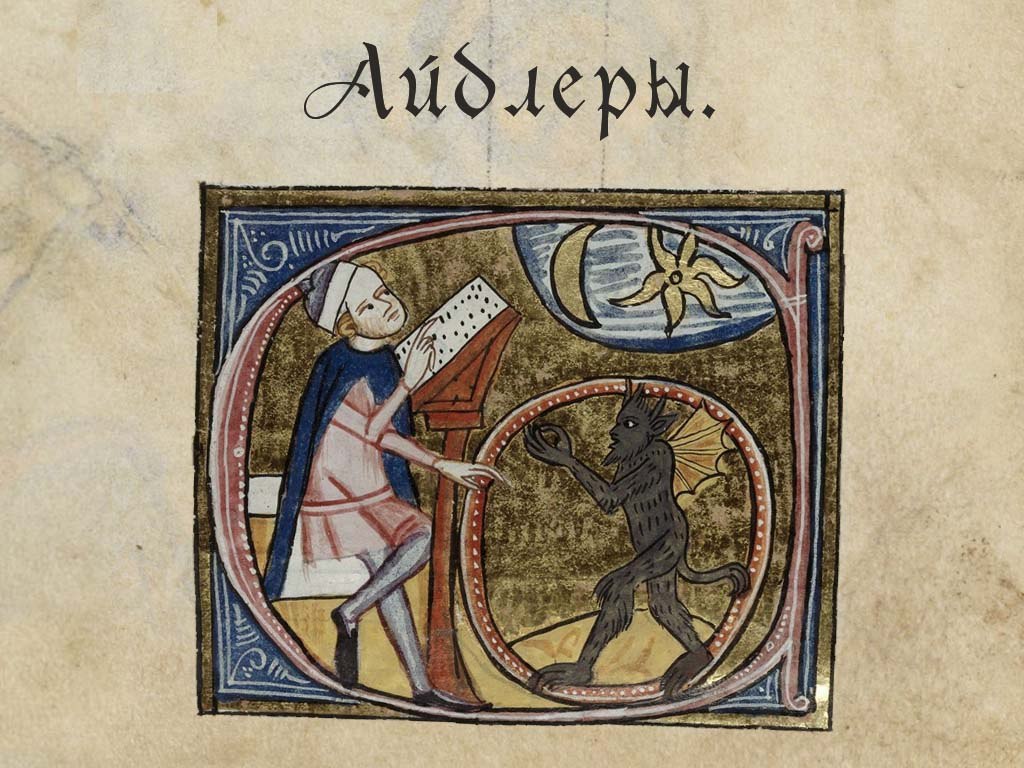 Айдлеры.